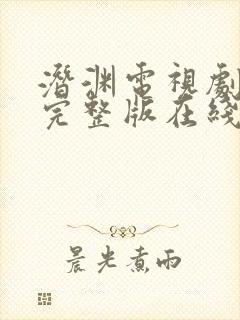 潛渊電視劇
完整版在綫
晨光煮雨